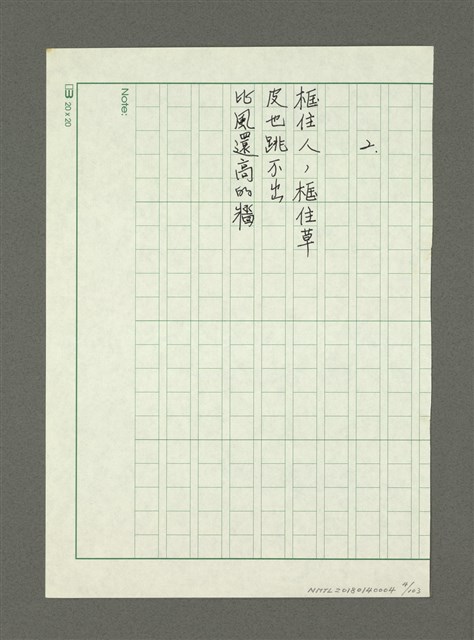 2.
框住人，框住草
皮也跳不出
比風還高的牆
Note:
20 x 20
NMTL20180140004 4/103